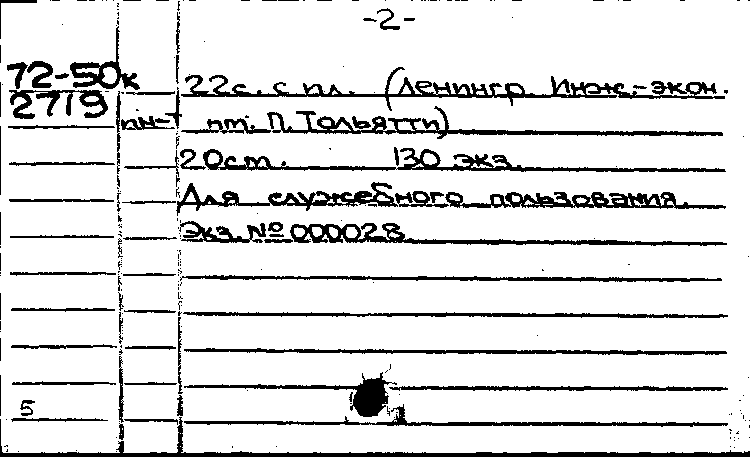 -2-
72-50к
2719
22с. с пл. (Ленингр. Инж.-экон.
ин-т им. П. Тольятти)
20см. 130 экз.
Для служебного пользования.
Экз. № 000028
5